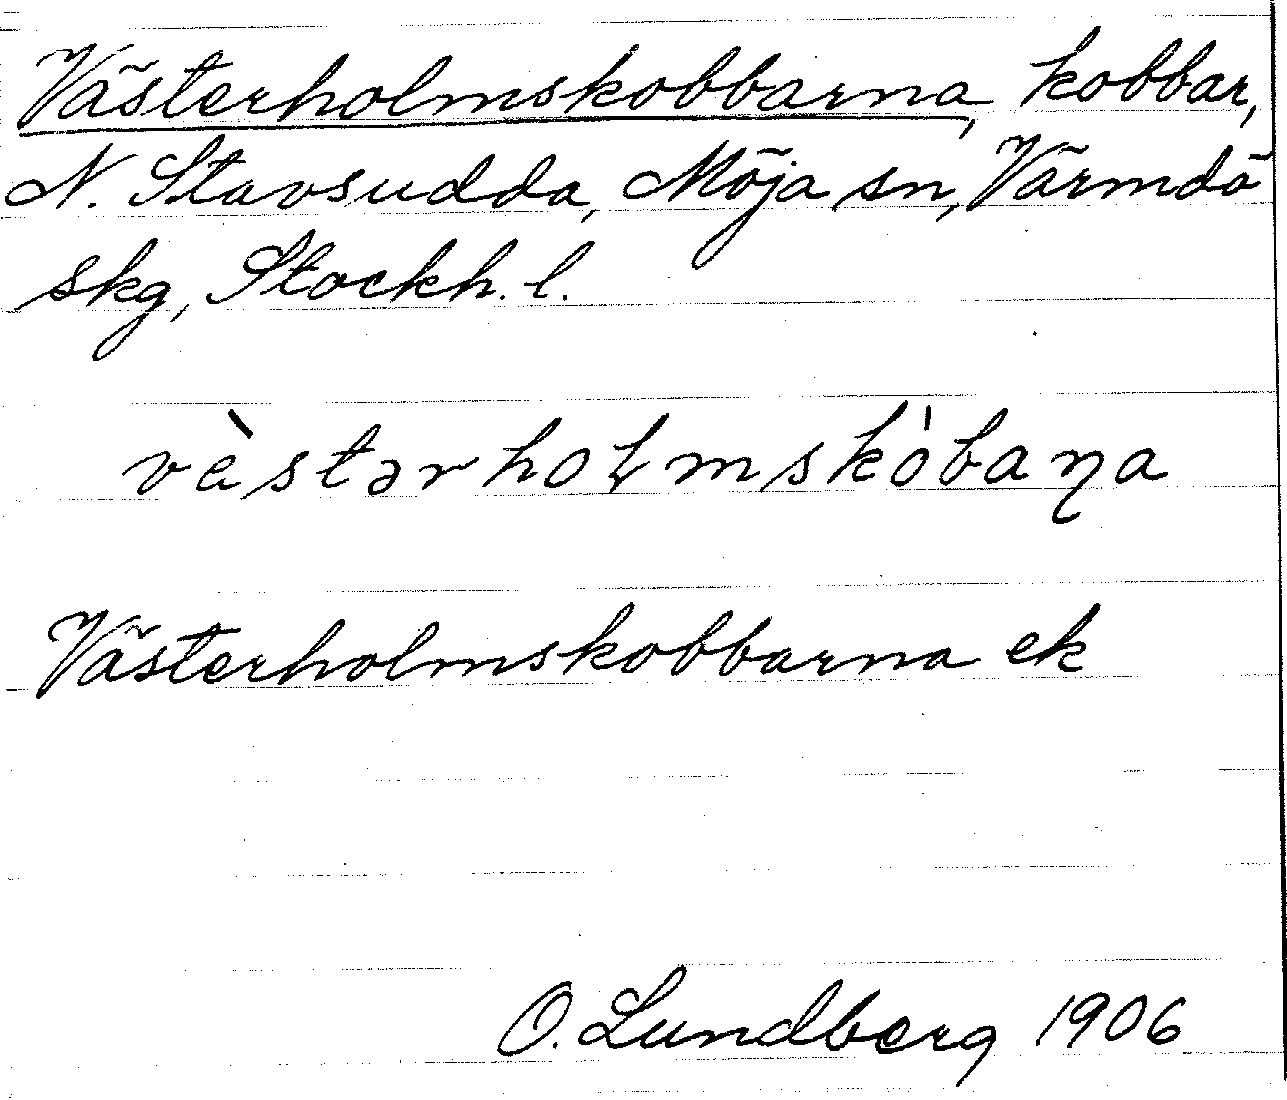 Västerholmskobbarna, kobbar,
N. Stavsudda, Möja sn, Värmdö
skg, Stockh. l.
vèstərhoɫmskòbaɳa
Västerholmskobbarna ek
O. Lundberg 1906